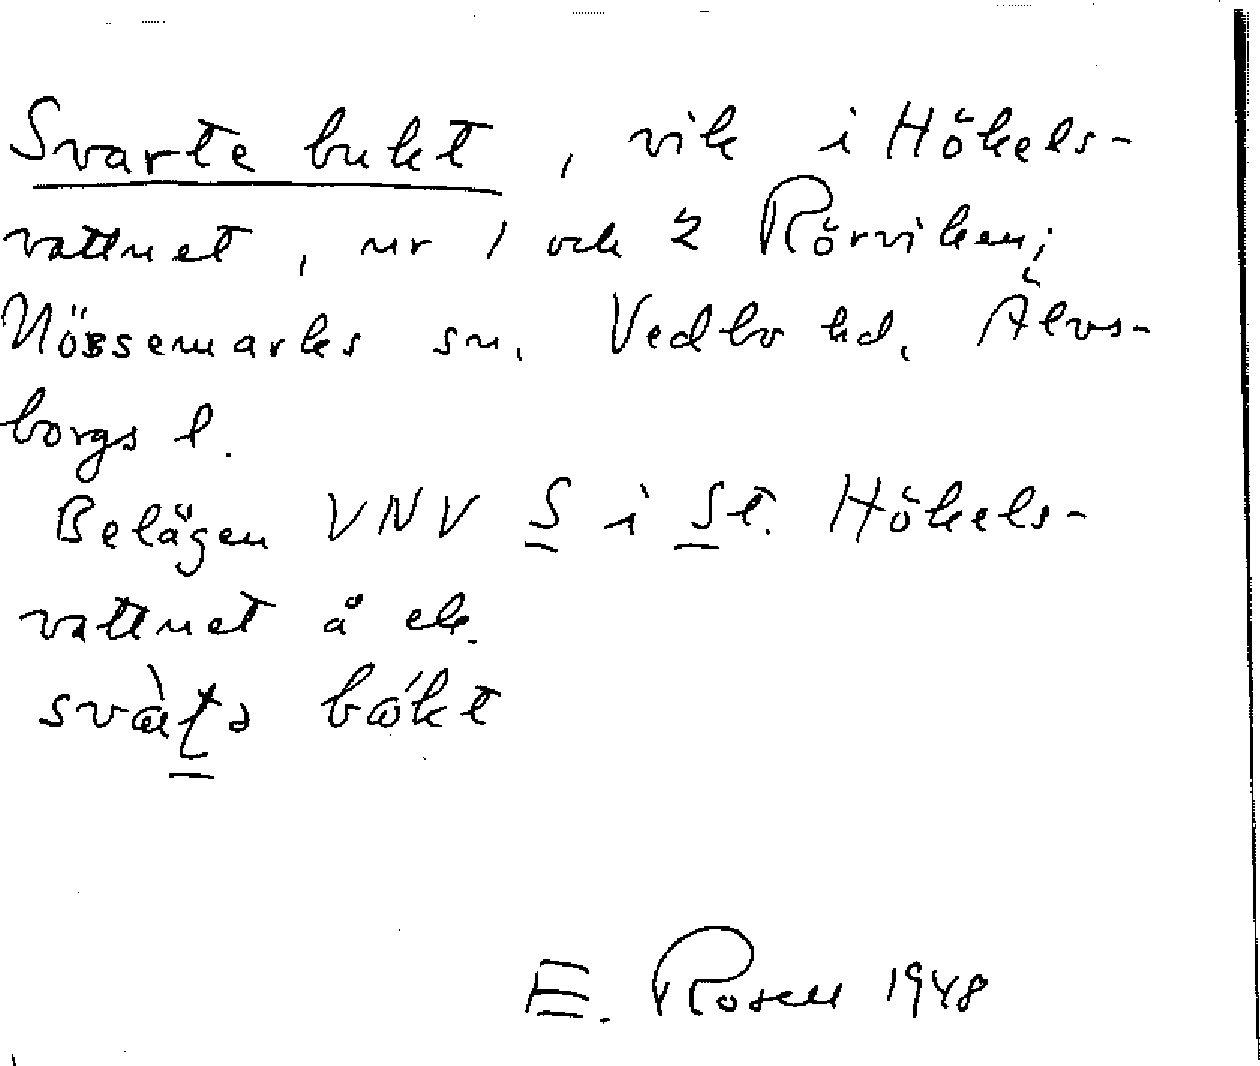 Svarte bukt, vik i Hökels-
vattnet, nr 1 och 2 Rörviken;
Nössemarks sn. Vedbo hd. Älvs-
borgs l.
Belägen VNV S i St. Hökels-
vattnet å ek.
bókt
E. Rosell 1948